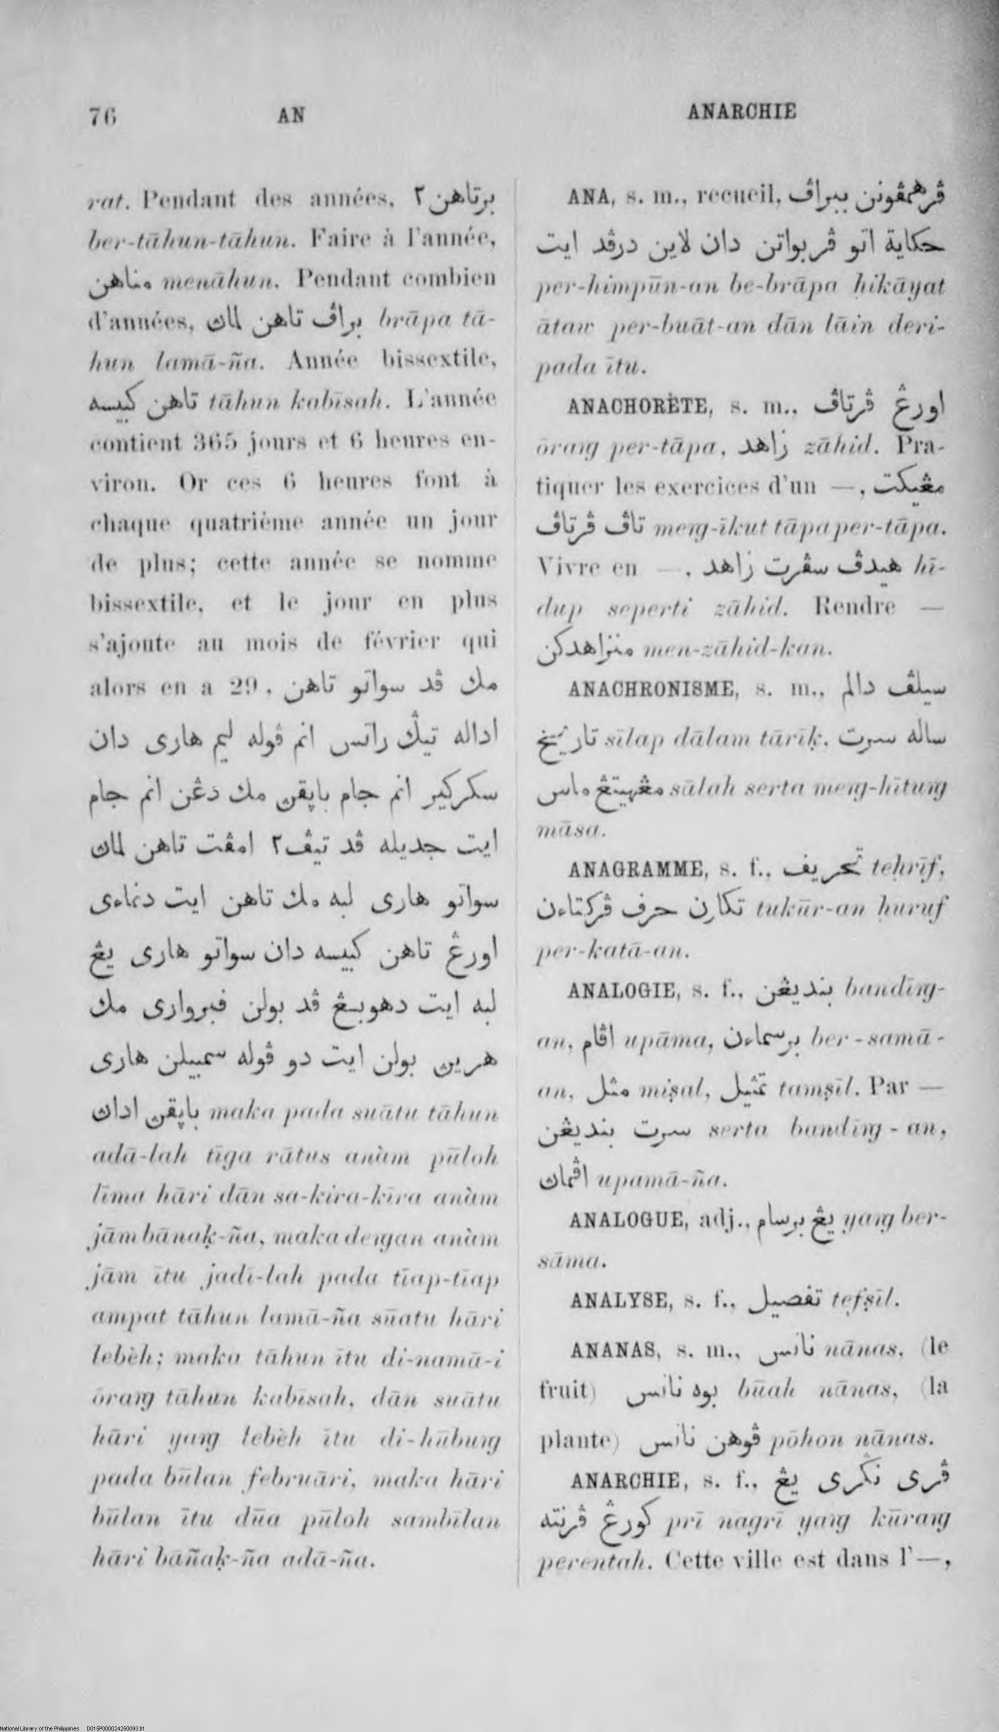 76 AN ANARCHIE
rat. Pendant des années, برتاهن٢
ber-tāhun-tāhun. Faire à l'année,
مناهن menāhun. Pendant combien
d'années, براڤ تاهن لماڽ brāpa tā-
hun lamā-ña. Année bissextile,
تاهن كبيسه tāhun kabīsah. L'année
contient 365 jours et 6 heures en-
viron. Or ces 6 heures font à
chaque quatriéme année un jour
de plus; cette année se nomme
bissextile, et le jour en plus
s'ajoute au mois de février qui
alors en a 29, مك ڤد سواتو تاهن
اداله تيݢ راتس انم ڤوله ليم هاري دان
سكركير انم جام باڽقڽ مك دڠن انم جام
ايت جديله ڤد تيڤ٢ امڤت تاهن لماڽ
سواتو هاري لبه مك تاهن ايت دنماءي
اورڠ تاهن كبيسه دان سواتو هاري يڠ
لبه ايت دهوبڠ ڤد بولن فبرواري مك
هرين بولن ايت دو ڤوله سمبيلن هاري
باڽقڽ اداڽ maka pada suātu tāhun
adā-lah tīga rātus anàm pūloh
līma hāri dān sa-kira-kīra anàm
jām bānaḳ-ña, maka deŋgan anàm
jām ītu jadī-lah pada tīap-tīap
ampat tāhun lamā-ña sūatu hāri
lebèh; maka tāhun ītu di-namā-i
ōraŋg tāhun kabīsah, dān suātu
hāri yaŋg lebèh ītu di-hūbuŋg
pada būlan februāri, maka hāri
būlan ītu dūa pūloh sambīlan
hāri bāñaḳ-ña adā-ña.
ANA, s. m., recueil, ڤرهمڤونن ببراڤ
حكاية اتو ڤربواتن دان لاين درڤد ايت
per-himpūn-an be-brāpa ḥikāyat
ātaw per-buāt-an dān lāin deri-
pada ītu.
ANACHORÈTE, s. m., اورڠ ڤرتاڤ
ōraŋg per-tāpa, زاهد zāhid. Pra-
tiquer les exercices d'un —, مڠيكت
تاڤ ڤرتاڤ meŋg-īkut tāpa per-tāpa.
Vivre en —, هيدڤ سڤرت زاهد hī-
dup seperti zāhid. Rendre —
منزاهدكن men-zāhid-kan.
ANACHRONISME, s. m., سيلڤ دالم
تاريخ sīlap dālam tārīḳ, ساله سرت
مڠهيتڠ ماس sālah serta meŋg-hītuŋg
māsa.
ANAGRAMME, s. f., تحريف teḥrīf,
تكارن حرف ڤركتاءن tukār-an ḥuruf
per-katā-an.
ANALOGIE, s. f., بنديڠن bandīŋg-
an, اڤام upāma, برسماءن ber-samā-
an, مثل miṣal, تمثيل tamṣīl. Par —
سرت بنديڠن serta bandīŋg-an,
اڤماڽ upamā-ña.
ANALOGUE, adj., يڠ برسام yaŋg ber-
sāma.
ANALYSE, s. f., تفصيل tefṣīl.
ANANAS, s. m., نانس nānas, (le
fruit) بوه نانس būah nānas, (la
plante) ڤوهن نانس pōhon nānas.
ANARCHIE, s. f., ڤري نݢري يڠ
كورڠ ڤرنته prī nagrī yaŋg kūraŋg
perentah. Cette ville est dans l'—,
National Library of the Philippines